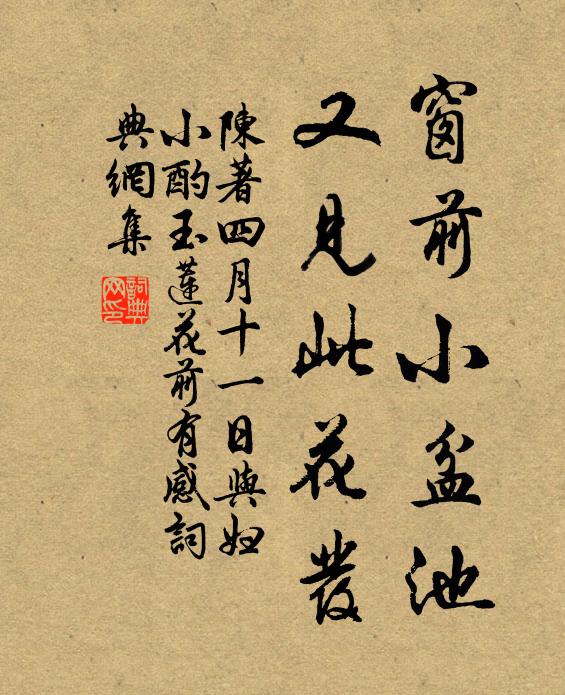 窗前小盆池
又見此花發
陳著四月十一日與婦
小酌玉蓮花前有感詞
典網集
詞典網印